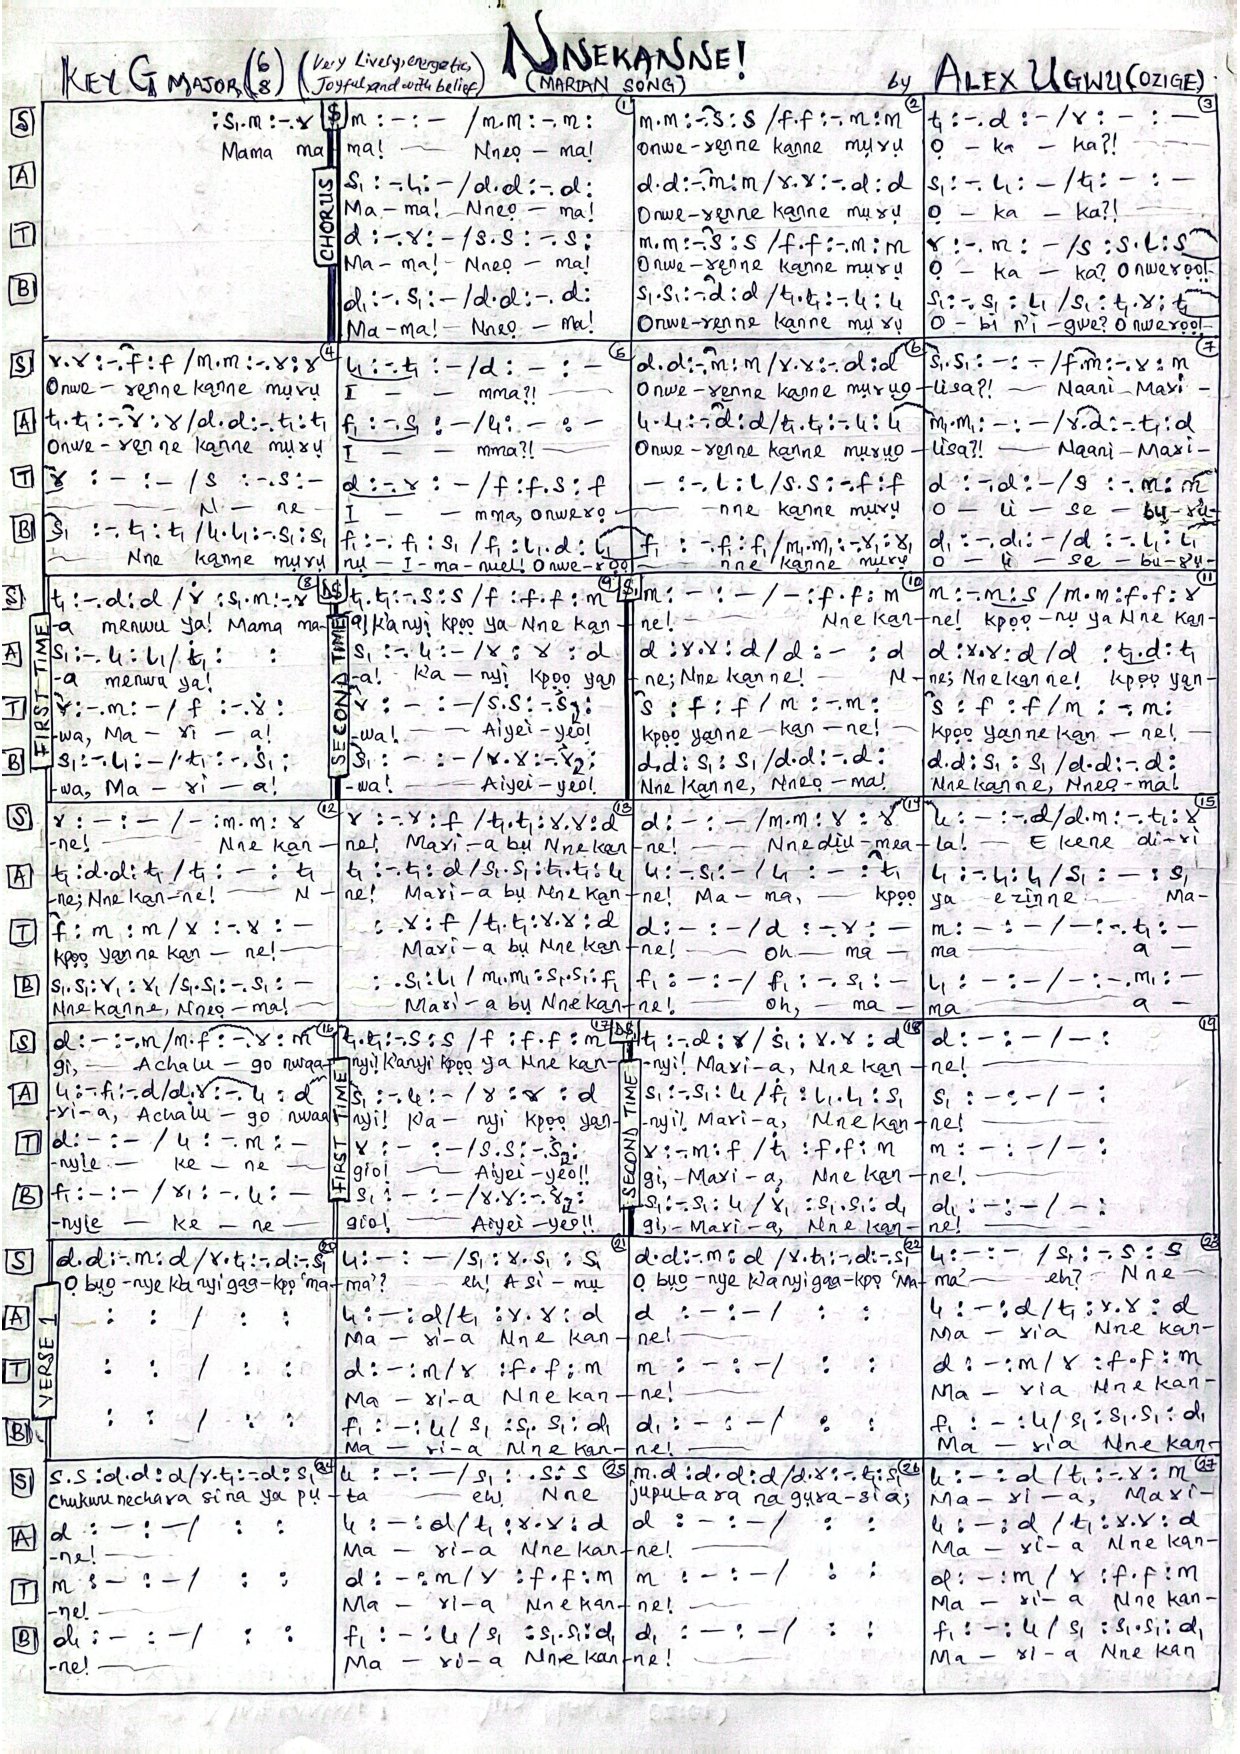 NNEKANNE!
KEY G MAJOR (6/8) (Very Lively, energetic, Joyful and with belief) (MARIAN SONG) by ALEX UGWU (OZIGE)
CHORUS
S :s₁.m:-.r | m:-:-/m.m:-.m: ① | m.m:-.s:s/f.f:-.m:m ② | t₁:-.d:-/r:-:- ③
Mama ma | ma! Nneọ - ma! | Onwe-renne kanne mụrụ | Ọ - ka - ka?!
A s₁:-.l₁:-/d.d:-.d: | d.d:-.m:m/r.r:-.d:d | s₁:-.l₁:-/t₁:-:-
Ma-ma! Nneọ - ma! | Onwe-renne kanne mụrụ | Ọ - ka - ka?!
T d:-.r:-/s.s:-.s: | m.m:-.s:s/f.f:-.m:m | r:-.m:-/s:s.l:s
Ma-ma! Nneọ - ma! | Onwe-renne kanne mụrụ | Ọ - ka - ka? Onwerọọ!
B d₁:-.s₁:-/d.d:-.d: | s₁.s₁:-.d:d/t₁.t₁:-.l₁:l₁ | s₁:-.s₁:l₁/s₁:t₁.r:t₁
Ma-ma! Nneọ - ma! | Onwe-renne kanne mụrụ | O - bi n'i - gwe? Onwerọọ!
S r.r:-.f:f/m.m:-.r:r ④ | l₁:-.t₁:-/d:-:- ⑤ | d.d:-.m:m/r.r:-.d:d ⑥ | s₁.s₁:-:-/f.m:-.r:m ⑦
Onwe-renne kanne mụrụ | I - - mma?! | Onwe-renne kanne mụrụo - | lisa?! Naani Mari -
A t₁.t₁:-.r:r/d.d:-.t₁:t₁ | f₁:-.s₁:-/l₁:-:- | l₁.l₁:-.d:d/t₁.t₁:-.l₁:l₁ | m₁.m₁:-:-/r.d:-.t₁:d
Onwe-renne kanne mụrụ | I - - mma?! | Onwe-renne kanne mụrụo - | lisa?! Naani-Mari-
T r:-:-/s:-.s:- | d:-.r:-/f:f.s:f | -:-.l:l/s.s:-.f:f | d:-.d:-/s:-.m:m
N - ne | I - - mma, onwerọ | nne kanne mụrụ | O - li - se - bụ-rụ-
B s₁:-.t₁:t₁/l₁.l₁:-.s₁:s₁ | f₁:-.f₁:s₁/f₁:l₁.d:l₁ | f₁:-.f₁:f₁/m₁.m₁:-.r₁:r₁ | d₁:-.d₁:-/d:-.l₁:l₁
Nne kanne mụrụ | nụ - I-ma-nuel! Onwe-rọọ | nne kanne mụrụ | O - li - se - bụ-rụ-
FIRST TIME | SECOND TIME
S t₁:-.d:d/r:s₁.m:-.r ⑧ | t₁.t₁:-.s:s/f:f.f:m ⑨ | m:-:-/-:f.f:m ⑩ | m:-.m:s/m.m:f.f:r ⑪
-a menwu ya! Mama ma- | a! K'anyi kpọọ ya Nne kan - | ne! Nne kan - | ne! kpọọ-nụ ya Nne kan-
A s₁:-.l₁:l₁/t₁: : | s₁:-.l₁:-/r:r:d | d:r.r:d/d:-:d | d:r.r:d/d:t₁.d:t₁
-a menwu ya! | -a! K'a - nyi kpọọ yan | ne; Nne kanne! N - | ne; Nne kanne! kpọọ yan-
T r:-.m:-/f:-.r: | r:-:-/s.s:-.s: | s:f:f/m:-.m: | s:f:f/m:-.m:
-wa, Ma - ri - a! | -wa! Aiyei-yeo! | kpọọ yanne kan - ne! | kpọọ yanne kan - ne!
B s₁:-.l₁:-/t₁:-.s₁: | s₁:-:-/r.r:-.r: | d.d:s₁:s₁/d.d:-.d: | d.d:s₁:s₁/d.d:-.d:
-wa, Ma - ri - a! | -wa! Aiyei-yeo! | Nne kanne, Nneọ-ma! | Nne kanne, Nneọ-ma!
S r:-:-/-:m.m:r ⑫ | r:-.r:f/t₁.t₁:r.r:d ⑬ | d:-:-/m.m:r:r ⑭ | l₁:-:-.d/d.m:-.t₁:r ⑮
-ne! Nne kan - | ne! Mari-a bụ Nne kan | ne! Nnedịụ-mea | la! E kene di-ri
A t₁:d.d:t₁/t₁:-:t₁ | t₁:-.t₁:d/s₁.s₁:t₁.t₁:l₁ | l₁:-.s₁:-/l₁:-:t₁ | l₁:-.l₁:l₁/s₁:-:s₁
-ne; Nne kan-ne! N - | ne! Mari-a bụ Nne kan - | ne! Ma - ma, kpọọ | ya ezinne Ma-
T f:m:m/r:-.r:- | :.r:f/t₁.t₁:r.r:d | d:-:-/d:-.r:- | m:-:-/-:-.t₁:-
kpọọ yanne kan - ne! | Mari-a bụ Nne kan | ne! oh ma | ma a -
B s₁.s₁:r₁:r₁/s₁.s₁:-.s₁:- | :.s₁:l₁/m₁.m₁:s₁.s₁:f₁ | f₁:-:-/f₁:-.s₁:- | l₁:-:-/-:-.m₁:-
Nne kanne, Nneọ-ma! | Mari-a bụ Nne kan | ne! oh, - ma | ma a -
FIRST TIME | SECOND TIME
S d:-:-.m/m.f:-.r:m ⑯ | t₁.t₁:-.s:s/f:f.f:m ⑰ | t₁:-.d:r/s₁:r.r:d ⑱ | d:-:-/-: ⑲
gi, Achalu - go nwaa | nyi! Kanyi kpọọ ya Nne kan- | -nyi! Mari-a, Nne kan | ne!
A l₁:-.l₁:-.d/d.r:-.l₁:d | s₁:-.l₁:-/r:r:d | s₁:-.s₁:l₁/f₁:l₁.l₁:s₁ | s₁:-:-/-:
-ri-a, Achalu - go nwaa | nyi! K'a - nyi kpọọ yan- | nyi! Mari-a, Nne kan | ne!
T d:-:-/l₁:-.m:- | r:-:-/s.s:-.s: | r:-.m:f/t₁:f.f:m | m:-:-/-:
-nyịe - ke - ne | gio! Aiyei-yeo!! | gi,-Mari-a, Nne kan | ne!
B f₁:-:-/r₁:-.l₁:- | s₁:-:-/r.r:-.r: | s₁:-.s₁:l₁/r₁:s₁.s₁:d₁ | d₁:-:-/-:
-nyịe - ke - ne | gio! Aiyei-yeo!! | gi,-Mari-a, Nne kan- | ne!
VERSE 1
S d.d:-.m:d/r.t₁:-.d:-.s₁ ⑳ | l₁:-:-/s₁:r.s₁:s₁ ㉑ | d.d:-.m:d/r.t₁:-.d:-.s₁ ㉒ | l₁:-:-/s₁:-.s:s ㉓
Ọ bụọ-nye k'a nyi gaa-kpọ 'ma- | ma'? eh! A si - mụ | Ọ bụọ-nye k'a nyi gaa-kpọ 'Ma- | ma' eh? Nne
A : : / : : | l₁:-:d/t₁:r.r:d | d:-:-/ : : | l₁:-:d/t₁:r.r:d
Ma - ri-a Nne kan - | ne! | Ma - ria Nne kan-
T : : / : : | d:-:m/r:f.f:m | m:-:-/ : : | d:-:m/r:f.f:m
Ma - ri-a Nne kan - | ne! | Ma - ria Nne kan-
B : : / : : | f₁:-:l₁/s₁:s₁.s₁:d₁ | d₁:-:-/ : : | f₁:-:l₁/s₁:s₁.s₁:d₁
Ma - ri-a Nne kan- | ne! | Ma - ria Nne kan-
S s.s:d.d:d/r.t₁:-.d:s₁ ㉔ | l₁:-:-/s₁:.s:s ㉕ | m.d:d.d:d/d.r:-.t₁:s₁ ㉖ | l₁:-:d/t₁:-.r:m ㉗
Chukwu nechara si na ya pụ - | ta eh, Nne | juputara na gụra-sia; | Ma - ri - a, Mari-
A d:-:-/ : : | l₁:-:d/t₁:r.r:d | d:-:-/ : : | l₁:-:d/t₁:r.r:d
-ne! | Ma - ri-a Nne kan | ne! | Ma - ri-a Nne kan-
T m:-:-/ : : | d:-:m/r:f.f:m | m:-:-/ : : | d:-:m/r:f.f:m
-ne! | Ma - ri-a Nne kan- | ne! | Ma - ri-a Nne kan-
B d₁:-:-/ : : | f₁:-:l₁/s₁:s₁.s₁:d₁ | d₁:-:-/ : : | f₁:-:l₁/s₁:s₁.s₁:d₁
-ne! | Ma - ri-a Nne kan | ne! | Ma - ri-a Nne kan